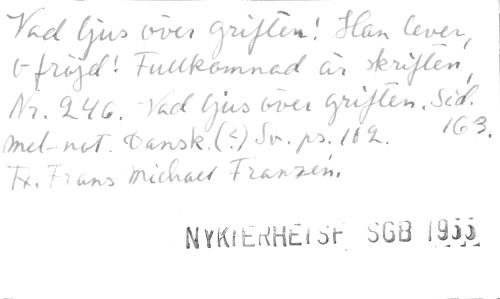 Vad ljus över griften! Han lever,
o fröjd! Fullkomnad är skriften,
Nr. 246. Vad ljus över griften. Sid. 163.
mel-not. Dansk. (?) Sv. ps. 102.
Tx. Frans Michael Franzén.
NYKTERHETSF SGB 1955